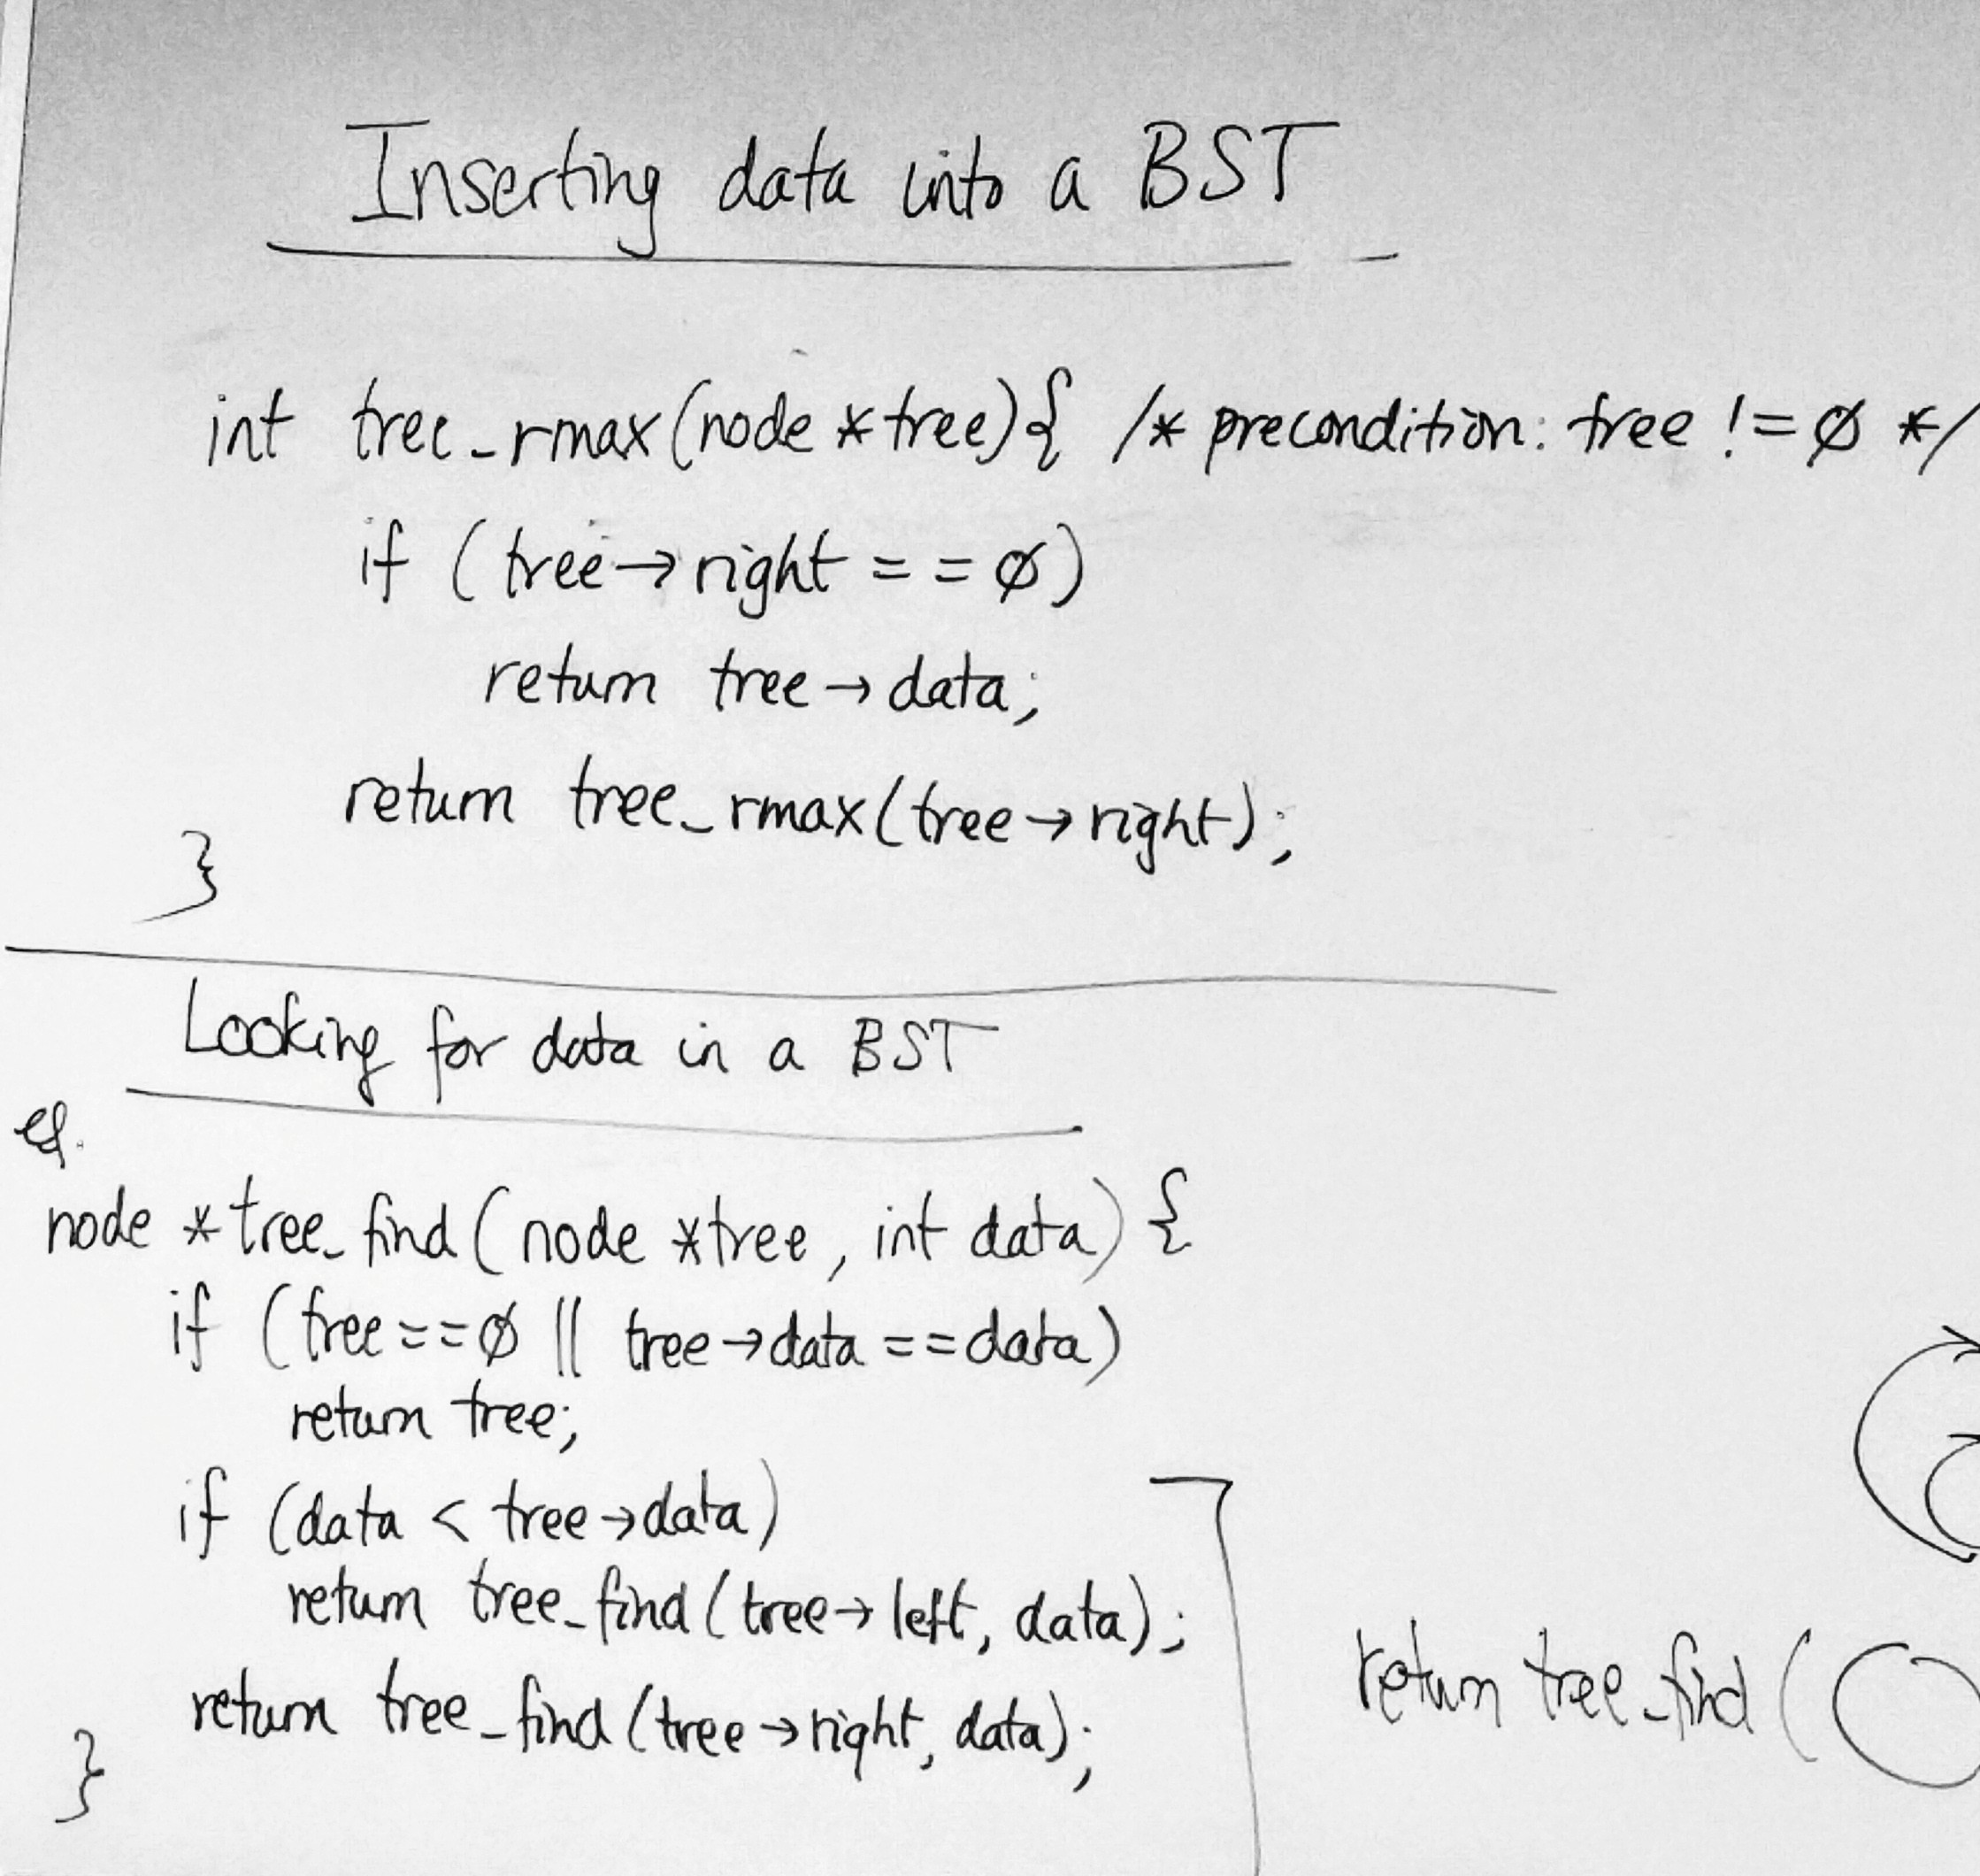 Inserting data into a BST
int tree_rmax(node *tree){ /* precondition: tree != Ø */
if (tree→right == Ø)
return tree→data;
return tree_rmax(tree→right);
}
Looking for data in a BST
eg.
node *tree_find(node *tree, int data) {
if (tree==Ø || tree→data ==data)
return tree;
if (data < tree→data)
return tree_find(tree→left, data);
return tree_find(tree→right, data);
}
return tree_find(